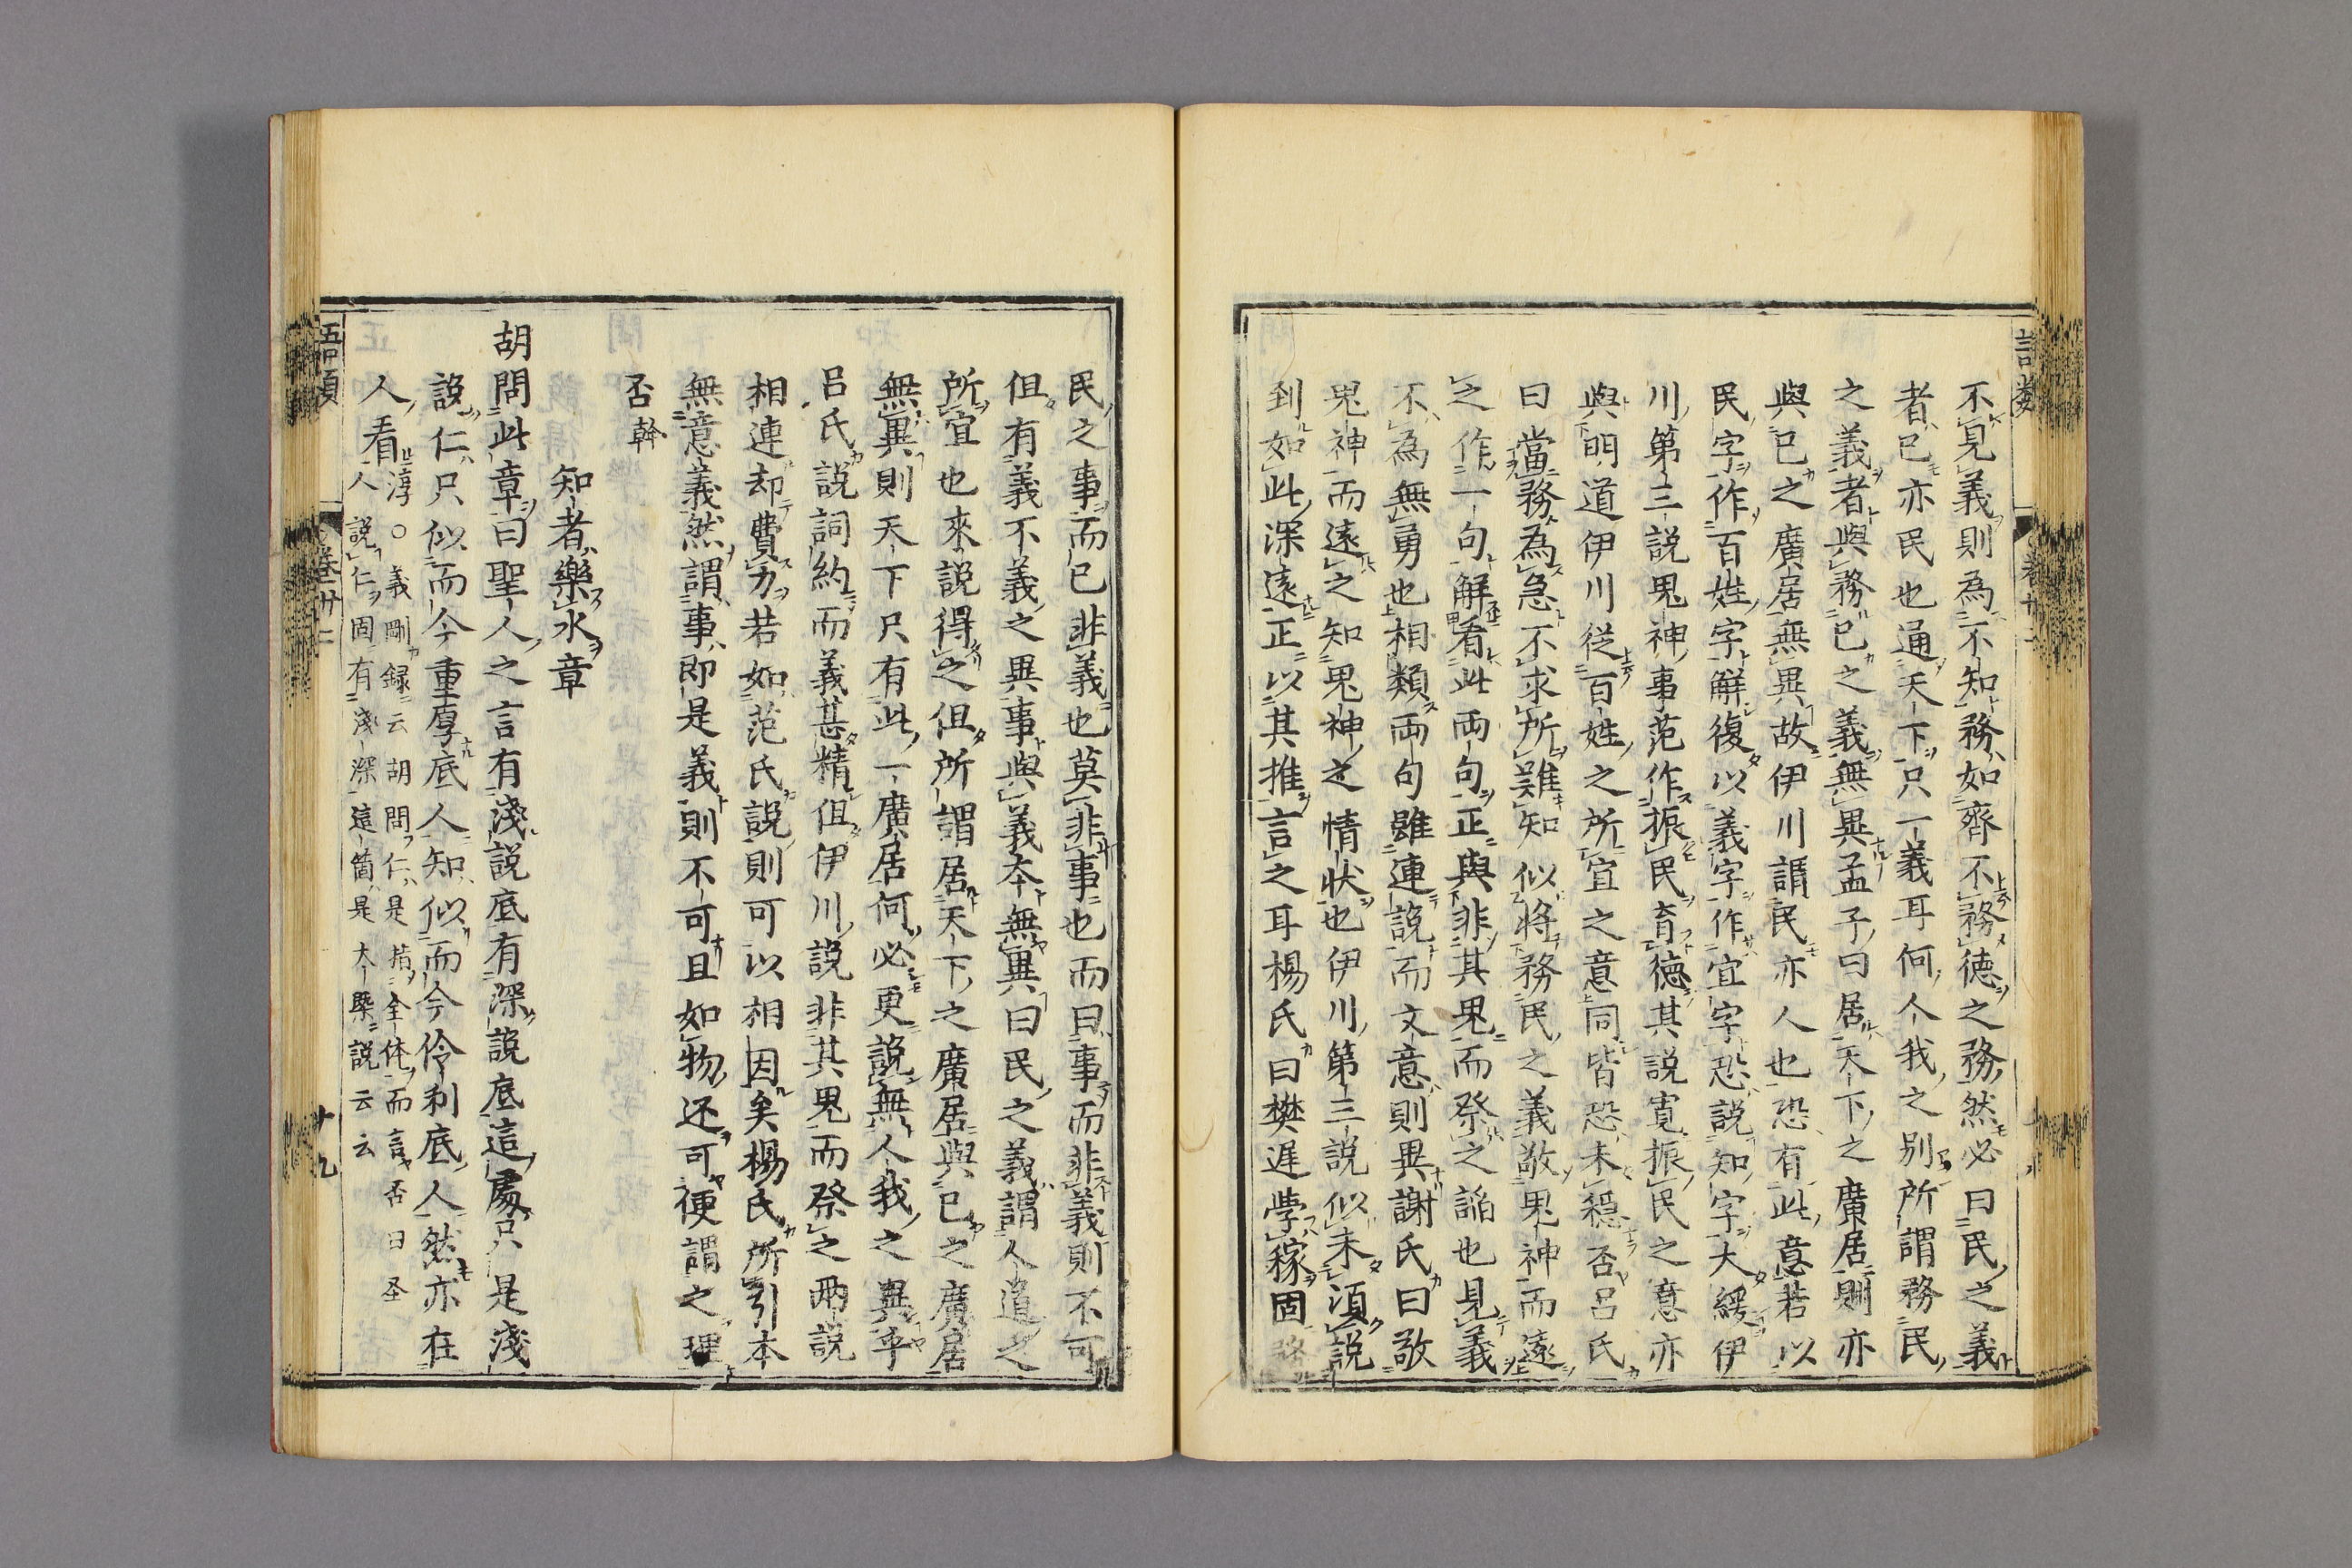 不見義則為不知務如齊不務德之務然必曰民之義
者已亦民也通天下只一義耳何人我之别所謂務民
之義者與務已之義無異孟子曰居天下之廣居則亦
與已之廣居無異故伊川謂民亦人也恐有此意若以
民字作百姓字解復以義字作宜字恐說知字大緩伊
川第三說鬼神事范作振民育徳其說寬振民之意亦
與明道伊川從百姓之所宜之意同皆恐未穩否呂氏
曰當務為急不求所難知似將務民之義敬鬼神而遠
之作一句解看此兩句正與非其鬼而祭之諂也見義
不為無勇也相類兩句雖連說而文意則異謝氏曰敬
鬼神而遠之知鬼神之情状也伊川第三說似未須說
到如此深遠正以其推言之耳楊氏曰樊遲學稼圃務
民之事而已非義也莫非事也而曰事而非義則不可
但有義不義之異事與義本無異曰民之義謂人道之
所宜也來說得之但所謂居天下之廣居與已之廣居
無異則天下只有此一廣居何必更說無人我之異乎
呂氏說詞約而義甚精但伊川說非其鬼而祭之兩說
相連却費力若如范氏說則可以相因矣楊氏所引本
無意義然謂事即是義則不可且如物还可便謂之理
否 幹
知者樂水章
胡問此章曰聖人之言有淺說底有深說底這處只是淺
說仁只似而今重厚底人知似而今伶利底人然亦在
人看 淳○義剛録云胡問仁是指全体而言否曰圣
人說仁固有淺深這箇是大槩說云云
語類 卷卅二 十九